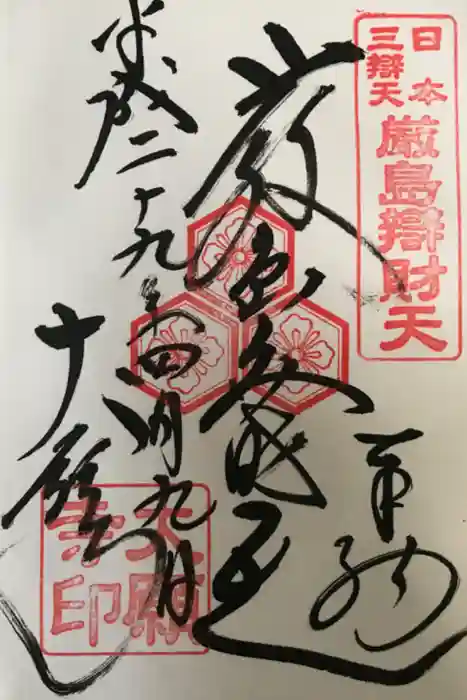 日本
三辯天
厳島辯財天
奉拝
厳島弁財天
平成二十九年四月九日
大願寺
大願寺印